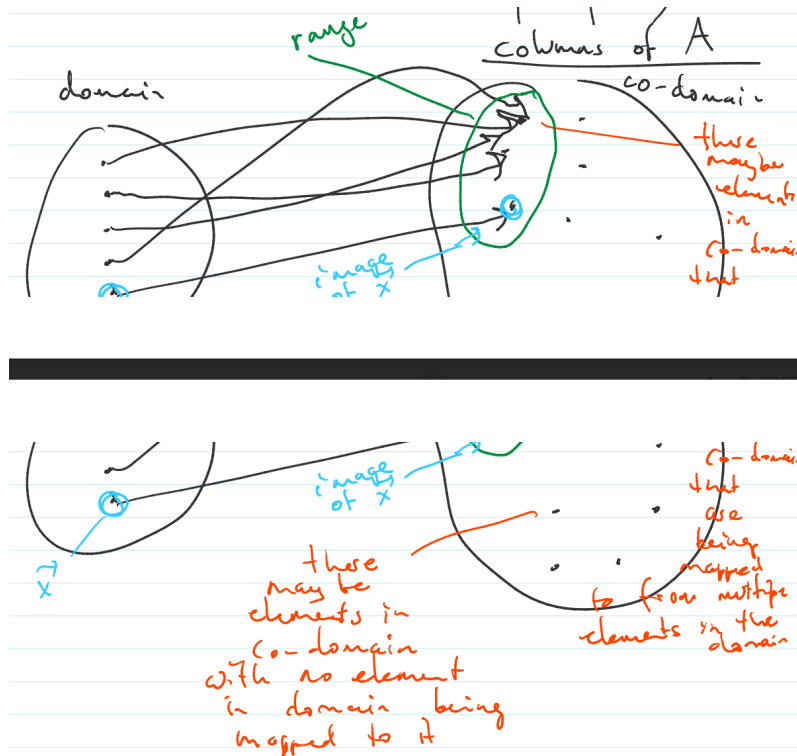 range
columns of A
domain
co-domain
there
maybe
elements
in
co-domain
that
image
of x
co-domain
that
are
being
mapped
to from multiple
elements in the
domain
image
of x
x
there
may be
elements in
co-domain
with no element
in domain being
mapped to it